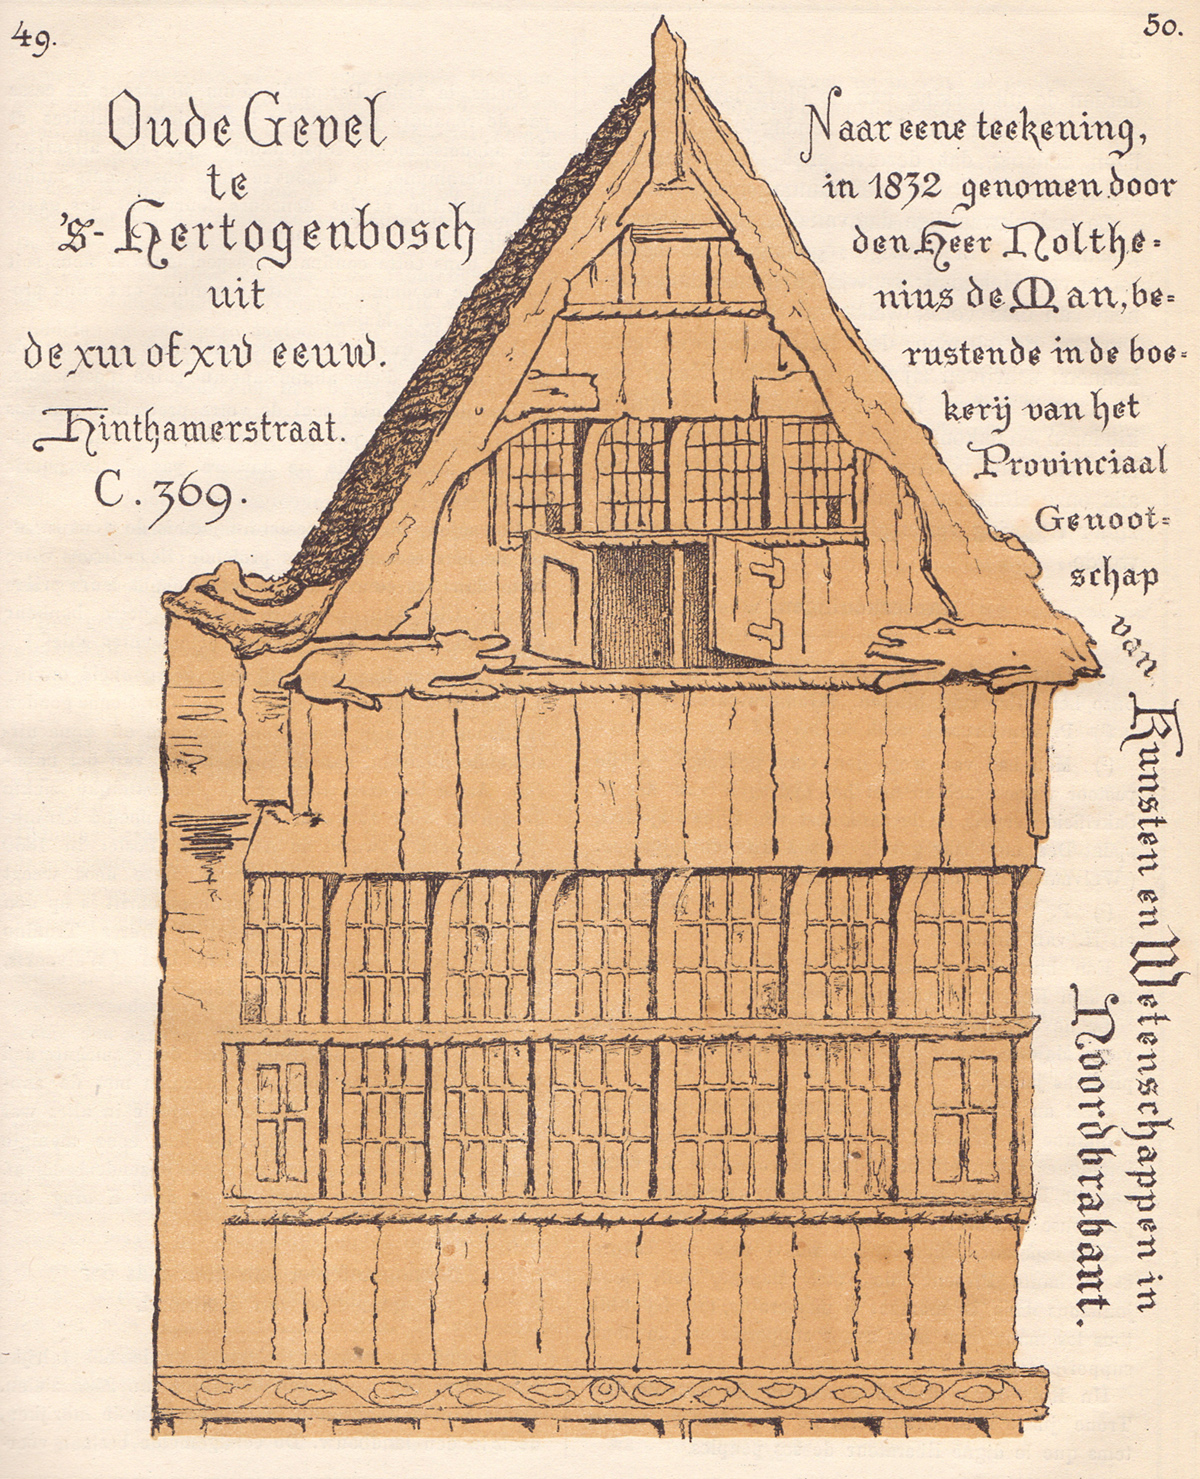 49.
50.
Oude Gevel
te
's-Hertogenbosch
uit
de xiii of xiv eeuw.
Hinthamerstraat.
C. 369.
Naar eene teekening,
in 1832 genomen door
den Heer Nolthe=
nius de Man, be=
rustende in de boe=
kerij van het
Provinciaal
Genoot=
schap
van
Kunsten en Wetenschappen in
Noordbrabant.